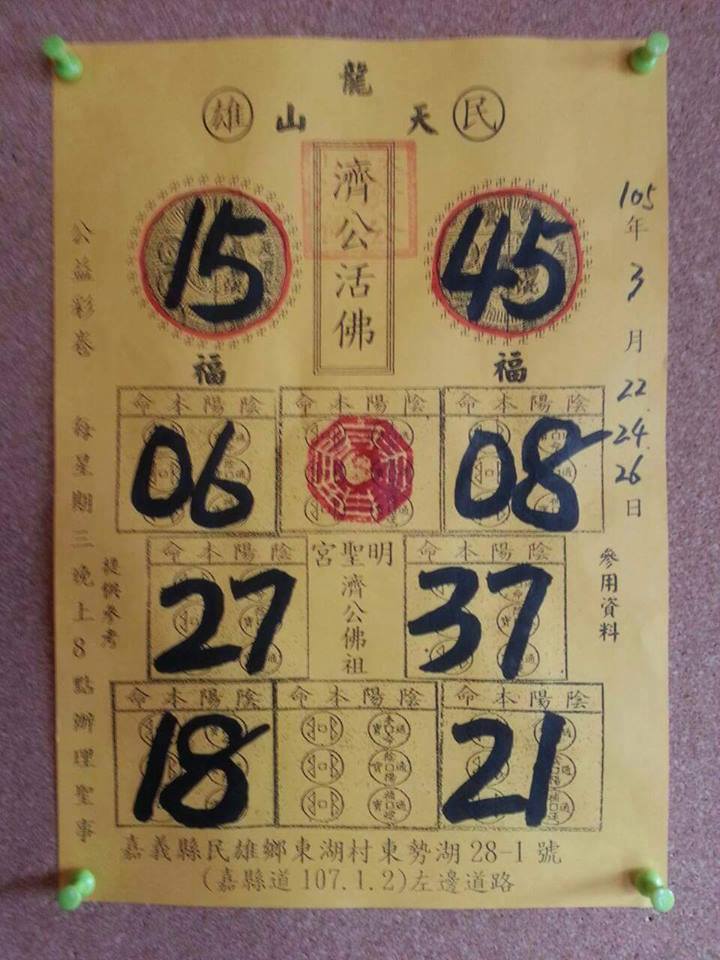 龍
雄 山 天 民
濟公活佛
15 45
福 福
105年3月22 24 26日
公益彩卷 每星期三晚上8點辦理聖事
提供參考
參用資料
命本陽陰 命本陽陰 命本陽陰
06 08
命本陽陰 宮聖明 命本陽陰
27 濟公佛祖 37
命本陽陰 命本陽陰 命本陽陰
18 21
嘉義縣民雄鄉東湖村東勢湖28-1號
(嘉縣道107.1.2)左邊道路